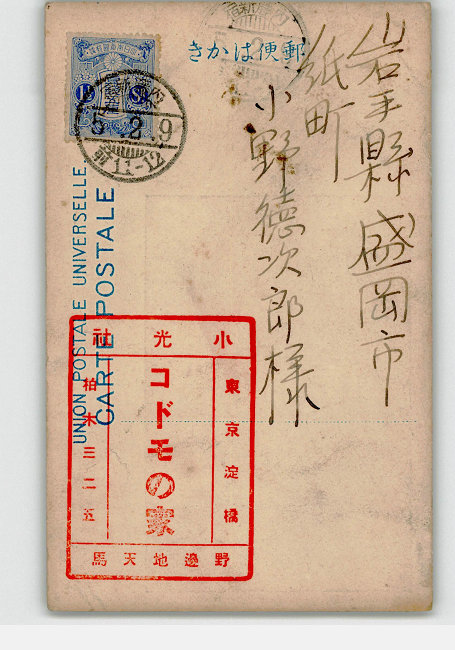 郵便はかき
岩手縣盛岡市
紙町
小野德次郎様
UNION POSTALE UNIVERSELLE
CARTE POSTALE
5 2 9
11-12
小光社
東京淀橋
コドモの家
柏木三二五
野邊地天馬